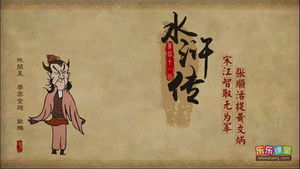 水浒传
第四十一回
宋江智取无为军
张顺活捉黄文炳
地闊星 摩雲金翅 歐鵬
乐乐课堂
lelexetang.com